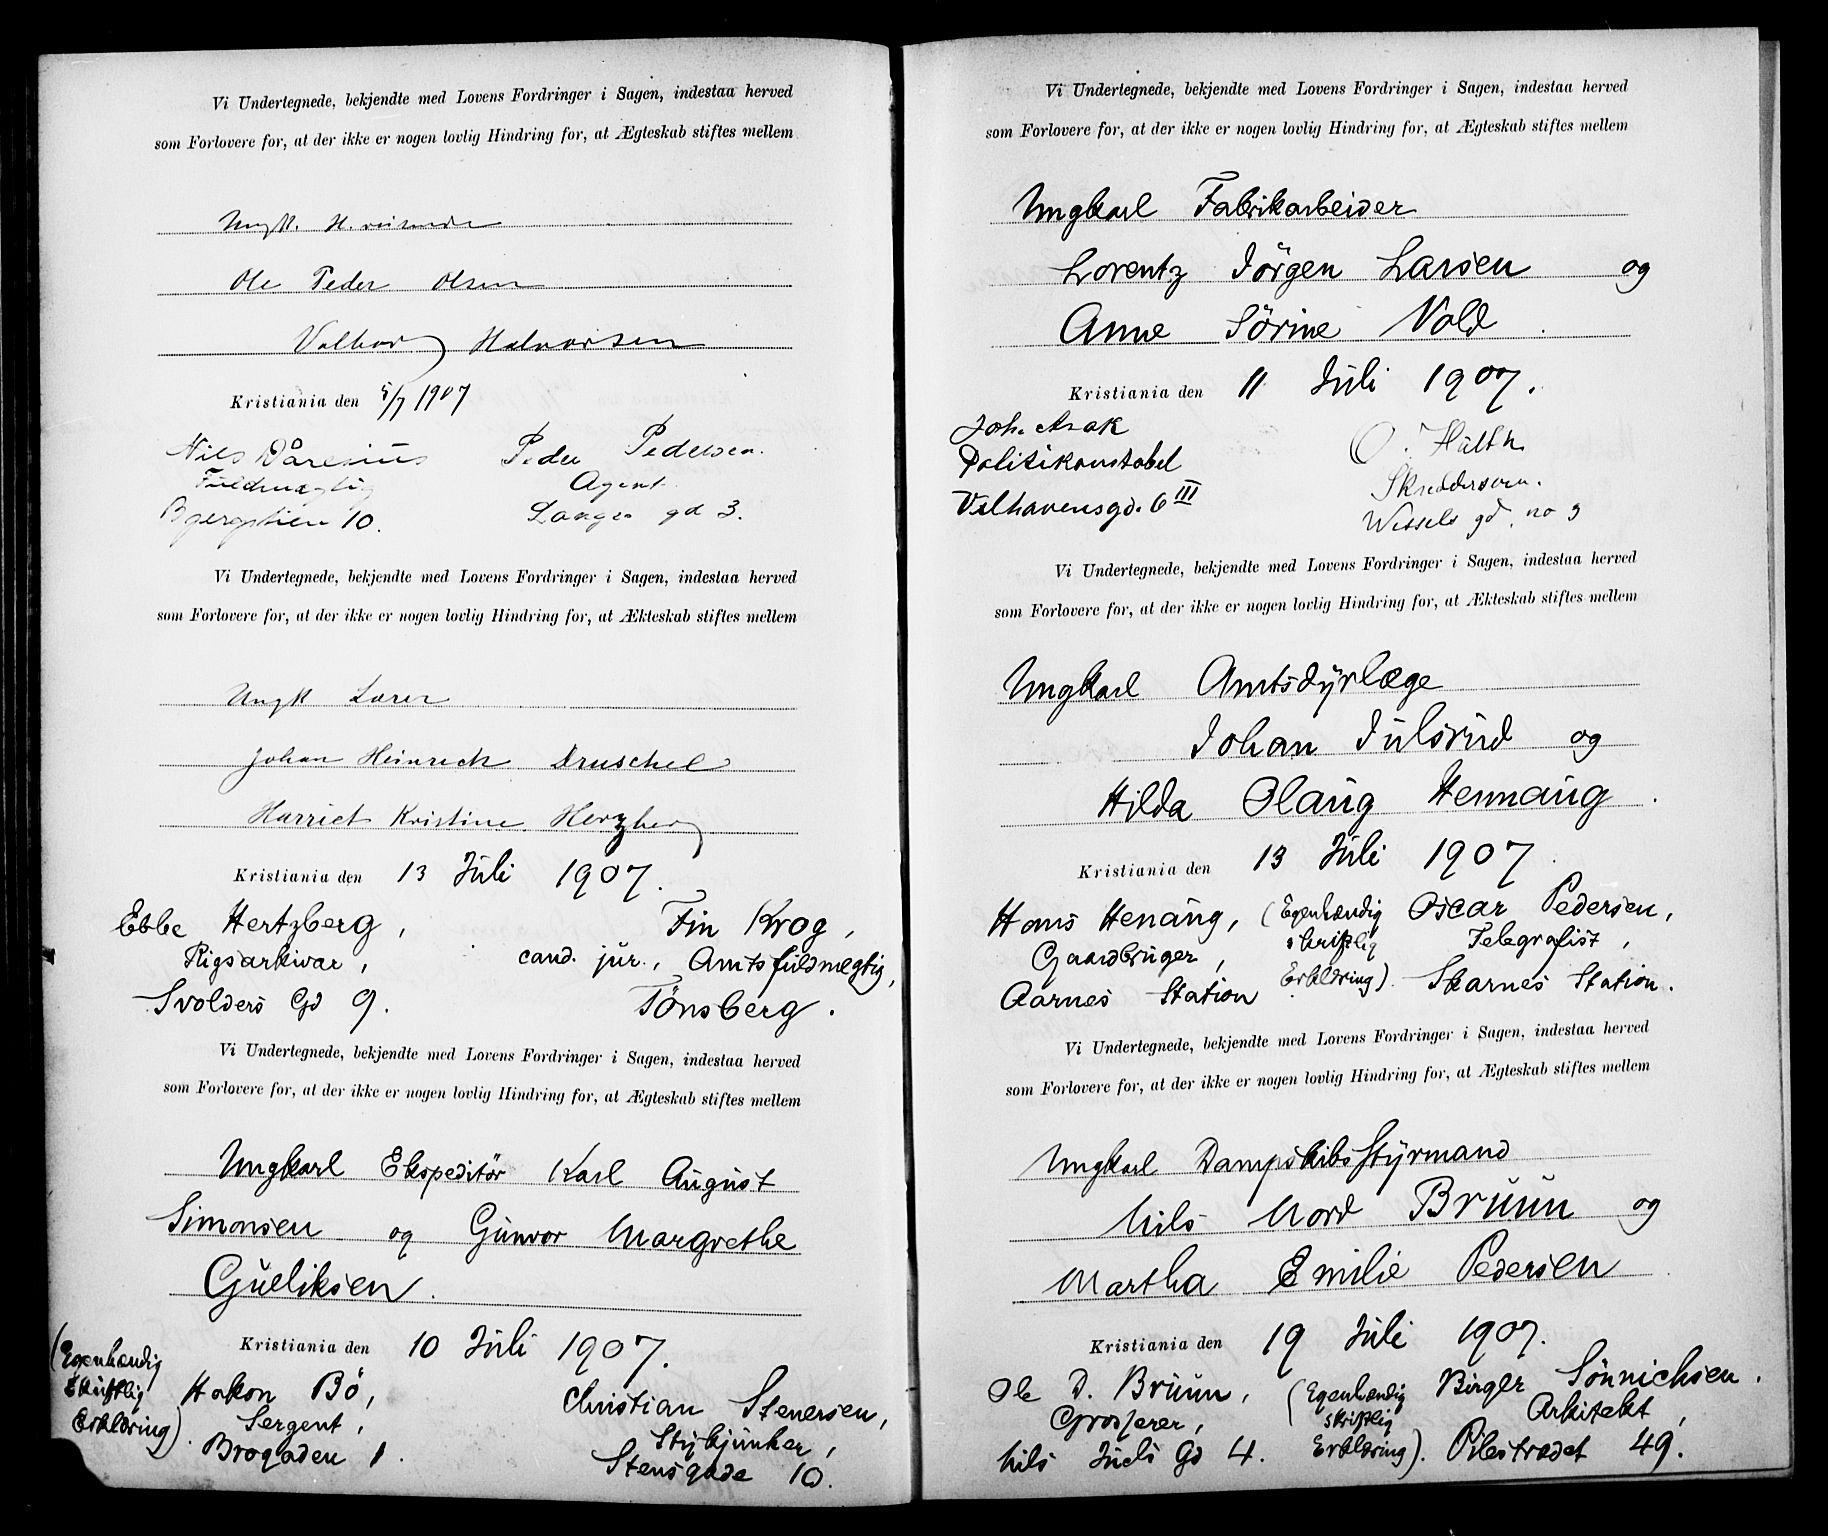 Vi Undertegnede, bekjendte med Lovens Fordringer i Sagen, indestaa herved
som Forlovere for, at der ikke er nogen lovlig Hindring for, at Ægteskab stiftes mellem
Ungk.
Ole Peder Olsen
Valborg Halvorsen
Kristiania den 5/7 1907
Nils Dårenius Peder Pedersen.
Fuldmægtig Agent.
Bjergstien 10. Langes gd 3.
Vi Undertegnede, bekjendte med Lovens Fordringer i Sagen, indestaa herved
som Forlovere for, at der ikke er nogen lovlig Hindring for, at Ækteskab stiftes mellem
Ungk Lærer
Johan Heinrich Druschel
Harriet Kristine Herzberg
Kristiania den 13 Juli 1907.
Ebbe Hertzberg, Fin Krog,
Rigsarkivar, cand. jur., Amtsfuldmægtig,
Svolders Gd 9. Tönsberg.
Vi Undertegnede, bekjendte med Lovens Fordringer i Sagen, indestaa herved
som Forlovere for, at der ikke er nogen lovlig Hindring for, at Ægteskab stiftes mellem
Ungkarl Ekspeditör Karl August
Simonsen og Gunvor Margrethe
Gulliksen.
Kristiania den 10 Juli 1907.
(Egenhændig
skriftlig Hakon Bö, Christian Stenersen,
Erklæring) Sergent, Stykjunker,
Brogaden 1. Stensgade 10.
Vi Undertegnede, bekjendte med Lovens Fordringer i Sagen, indestaa herved
som Forlovere for, at der ikke er nogen lovlig Hindring for, at Ægteskab stiftes mellem
Ungkarl Fabrikarbeider
Lorentz Jörgen Larsen og
Anne Sörine Vold.
Kristiania den 11 Juli 1907.
Joh. Arak O. Hulth
Politikonstabel Skreddersven.
Velhavensgd. 6 III Wessels gd. no 3
Vi Undertegnede, bekjendte med Lovens Fordringer i Sagen, indestaa herved
som Forlovere for, at der ikke er nogen lovlig Hindring for, at Ækteskab stiftes mellem
Ungkarl Amtsdyrlæge
Johan Julsrud og
Hilda Olaug Hennaug.
Kristiania den 13 Juli 1907
Hans Henaug, (Egenhændig Oscar Pedersen,
Gaardbruger, skriftlig Telegrafist,
Aarnes Station Erklæring). Skarnes Station.
Vi Undertegnede, bekjendte med Lovens Fordringer i Sagen, indestaa herved
som Forlovere for, at der ikke er nogen lovlig Hindring for, at Ægteskab stiftes mellem
Ungkarl Dampskibsstyrmand
Nils Nord Bruun og
Martha Emilie Pedersen
Kristiania den 19 Juli 1907.
Ole D. Bruun, (Egenhændig Birger Sönnichsen.
Grosserer, skriftlig Arkitekt,
Nils Juels Gd 4. Erklæring). Pilestrædet 49.